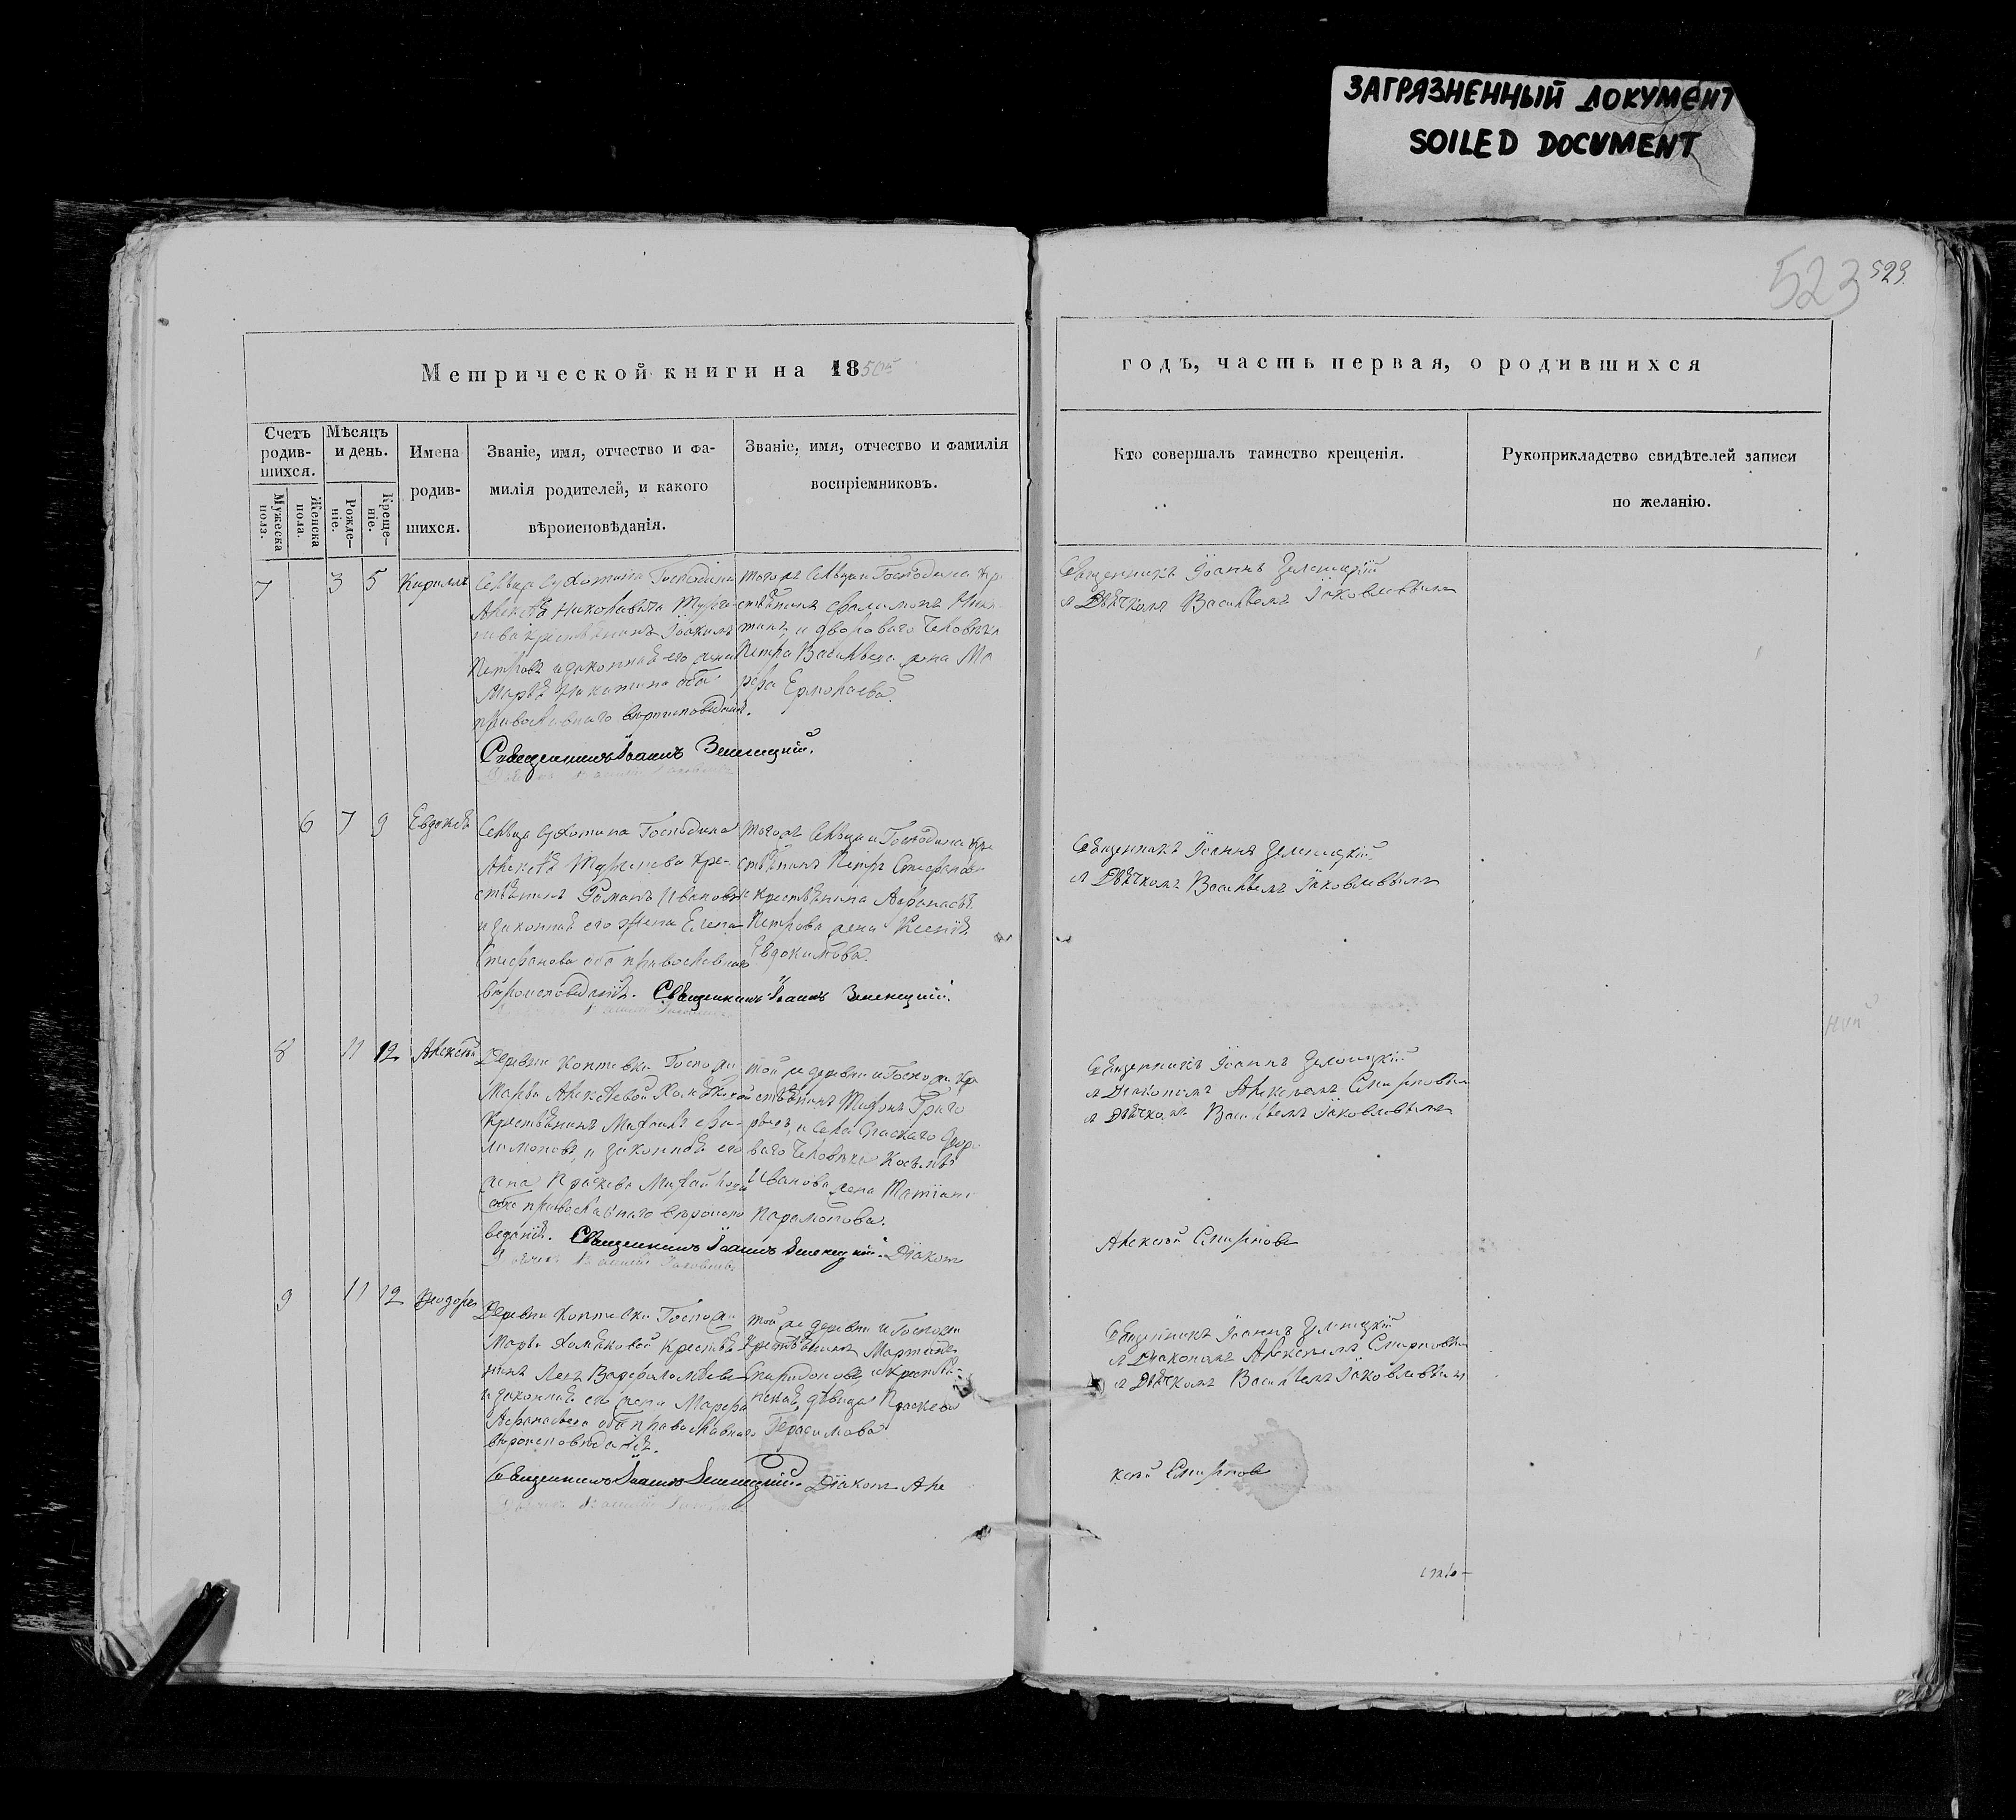 ЗАГРЯЗНЕННЫЙ ДОКУМЕНТ
SOILED DOCUMENT
523 523
Метрической книги на 1850й
годъ, часть первая, о родившихся
Счетъ родив-шихся.
Мужеска пола.
Женска пола.
Мѣсяцъ и день.
Рожде-ніе.
Креще-ніе.
Имена
родив-
шихся.
Званіе, имя, отчество и фа-
милія родителей, и какого
вѣроисповѣданія.
Званіе, имя, отчество и фамилія
воспріемниковъ.
Кто совершалъ таинство крещенія.
Рукоприкладство свидѣтелей записи
по желанію.
7 3 5 Кириллъ
Сельца Сухотина Господина
Алексѣя Николаевича
крестьянинъ Іоакимъ
Петровъ и законная его жена
Марья Никитина оба
православнаго вѣроисповѣданія.
Священникъ Іоаннъ Зеленецкій.
тогожъ Сельца и Господина Кре
стьянинъ Филимонъ
и дворового Человѣка
Петра Васильева жена Ма
рфа Ермолаева.
Священникъ Іоаннъ Зеленецкій
съ Дьячкомъ Васильемъ Іаковлевымъ
6 7 9 Евдокія
Сельца Сухотина Господина
Алексѣя Тургенева Кре-
стьянинъ Романъ Ивановъ
и законная его Жена Елена
Стефанова оба православнаго
вѣроисповѣданія. Священникъ Іоаннъ Зеленецкій.
тогожъ Сельца и Господина Кре
стьянинъ Петръ Стефановъ
и Крестьянина Афанасья
Петрова жена Ксенія
Евдокимова.
Священникъ Іоаннъ Зеленецкій
съ Дьячкомъ Васильемъ Іаковлевымъ
8 11 12 Алексѣй
Деревни Коптевки Госпожи
Марьи Алексѣевой Хомяковой
Крестьянинъ Михаилъ Фи-
лимоновъ, и законная его
жена Прасковья Михайлова
оба православнаго вѣроиспо
веданія. Священникъ Іоаннъ Зеленецкій. Діаконъ
той же деревни и Госпожи Кре
стьянинъ Тихонъ Григо
рьевъ, и Села Спаскаго Двор
ваго Человѣка Косьмы
Иванова жена Татіана
Парамонова.
Священникъ Іоаннъ Зеленецкій
съ Діакономъ Алексѣемъ Смирновымъ
съ Дьячкомъ Васильемъ Іаковлевымъ
Алексѣй Смирновъ
9 11 12 Ѳеодоръ
Деревни Коптевки Госпожи
Марьи Хомяковой Крестья
нинъ Левъ Варфоломѣевъ
и законная его жена Марфа
Афанасьева оба православнаго
вѣроисповѣданія.
Священникъ Іоаннъ Зеленецкій. Діаконъ Але
той же деревни и Госпожи
Крестьянинъ Мартинъ
Спиридоновъ, и Крестья-
нская дѣвица Прасковья
Герасимова
Священникъ Іоаннъ Зеленецкій
съ Діакономъ Алексѣемъ Смирновымъ
съ Дьячкомъ Васильемъ Іаковлевымъ
ксѣй Смирновъ